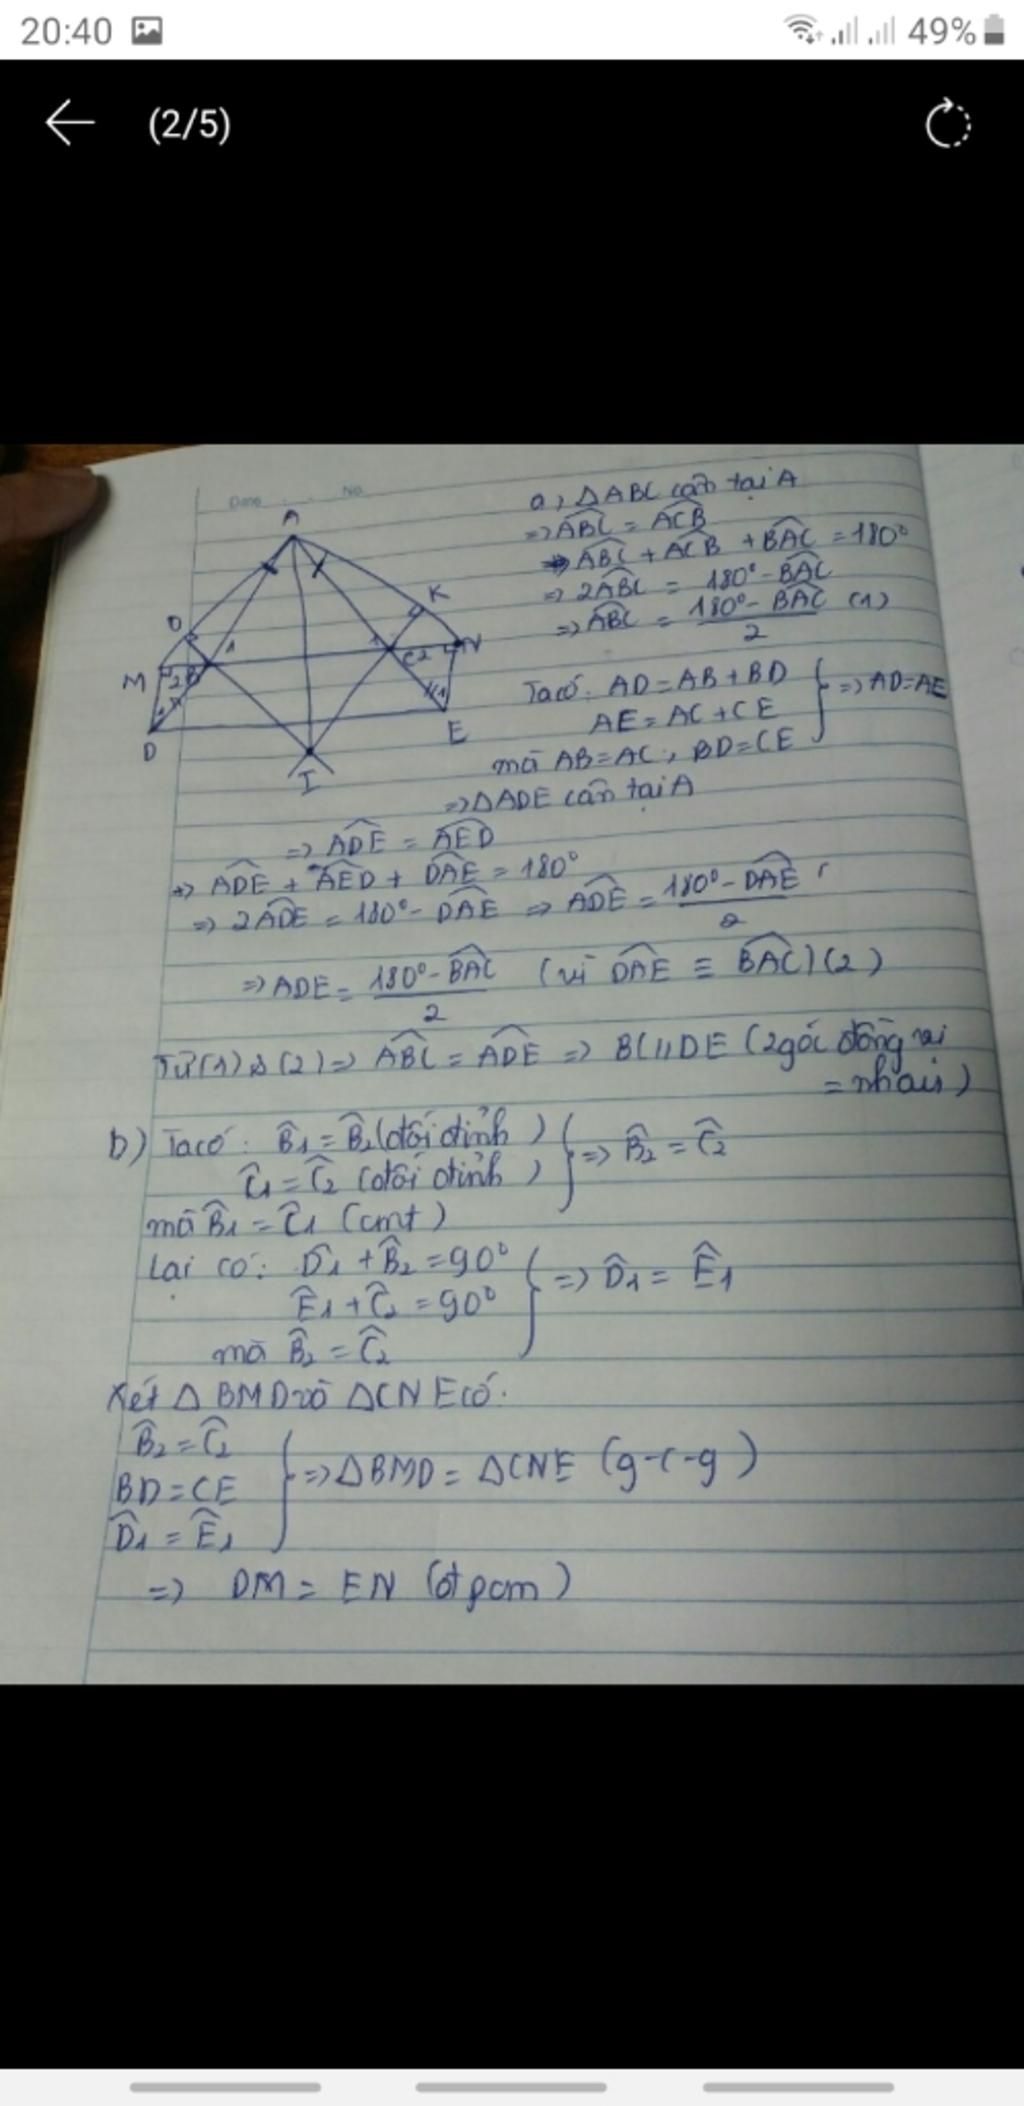 20:40
49%
(2/5)
Date No
a, ΔABC cân tại A
=> \widehat{ABC} = \widehat{ACB}
=> \widehat{ABC} + \widehat{ACB} + \widehat{BAC} = 180°
=> 2\widehat{ABC} = 180° - \widehat{BAC}
=> \widehat{ABC} = \frac{180° - \widehat{BAC}}{2} (1)
A
O
K
1
1
N
M
2
B
C2
1
1
D
E
I
Ta có: AD = AB + BD
AE = AC + CE } => AD = AE
mà AB = AC, BD = CE
=> ΔADE cân tại A
=> \widehat{ADE} = \widehat{AED}
=> \widehat{ADE} + \widehat{AED} + \widehat{DAE} = 180°
=> 2\widehat{ADE} = 180° - \widehat{DAE} => \widehat{ADE} = \frac{180° - \widehat{DAE}}{2}
=> ADE = \frac{180° - \widehat{BAC}}{2} (vì \widehat{DAE} ≡ \widehat{BAC}) (2)
Từ (1) & (2) => \widehat{ABC} = \widehat{ADE} => BC // DE (2 góc đồng vị
= nhau)
b) Ta có: \widehat{B}1 = \widehat{B}2 (đối đỉnh)
\widehat{C}1 = \widehat{C}2 (đối đỉnh) } => \widehat{B}2 = \widehat{C}2
mà \widehat{B}1 = \widehat{C}1 (cmt)
Lại có: \widehat{D}1 + \widehat{B}2 = 90°
\widehat{E}1 + \widehat{C}2 = 90° } => \widehat{D}1 = \widehat{E}1
mà \widehat{B}2 = \widehat{C}2
Xét Δ BMD và ΔCNE có:
\widehat{B}2 = \widehat{C}2
BD = CE } => ΔBMD = ΔCNE (g-c-g)
\widehat{D}1 = \widehat{E}1
=> DM = EN (đt pcm)